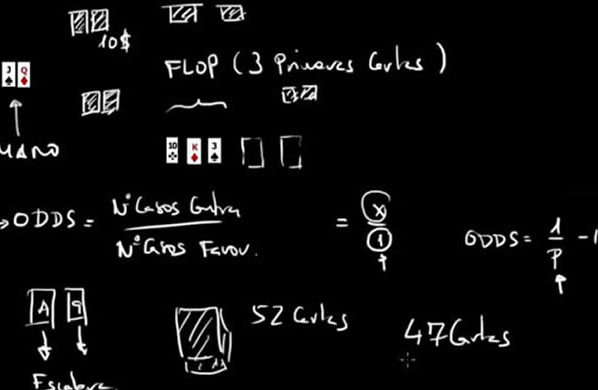 10$
J Q
FLOP (3 Primeras Cartas)
MANO
10 K 3
ODDS = Nº Casos Contra / Nº Casos Favor. = x / 1
ODDS = 1 / P - 1
A 9
52 Cartas
47 Cartas
Escalera